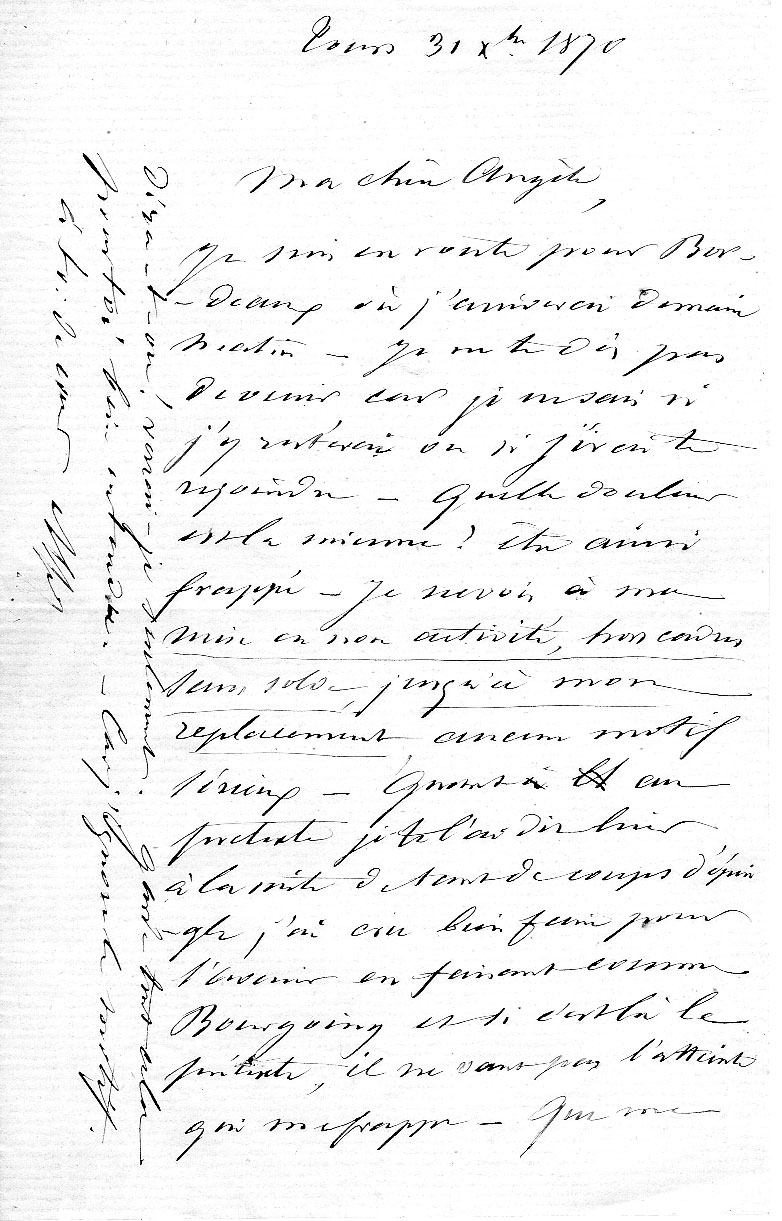 Tours 31 Xbre 1870
Ma chère Angèle,
Je suis en route pour Bor-
-deaux où j'arriverai demain
matin — Je ne te dis pas
de venir car je ne sais si
j'y resterai ou si j'irai te
rejoindre — Quelle douleur
est la mienne ! être ainsi
frappé — Je ne vois à ma
mise en non activité, hors cadres
sans solde, jusqu'à mon
replacement aucun motif
sérieux — Quant à au
prétexte je te l'ai dit hier
à la suite de tant de coups d'épin
-gle j'ai cru bien faire pour
l'avenir en faisant comme
Bourgoing et si c'est là le
prétexte, il ne vaut pas l'atteinte
qui me frappe — Que me
dira-t-on, verrai-je seulement. Garde tout cela
pour toi bien entendu. — Car j'ignore le motif.
à toi de cœur